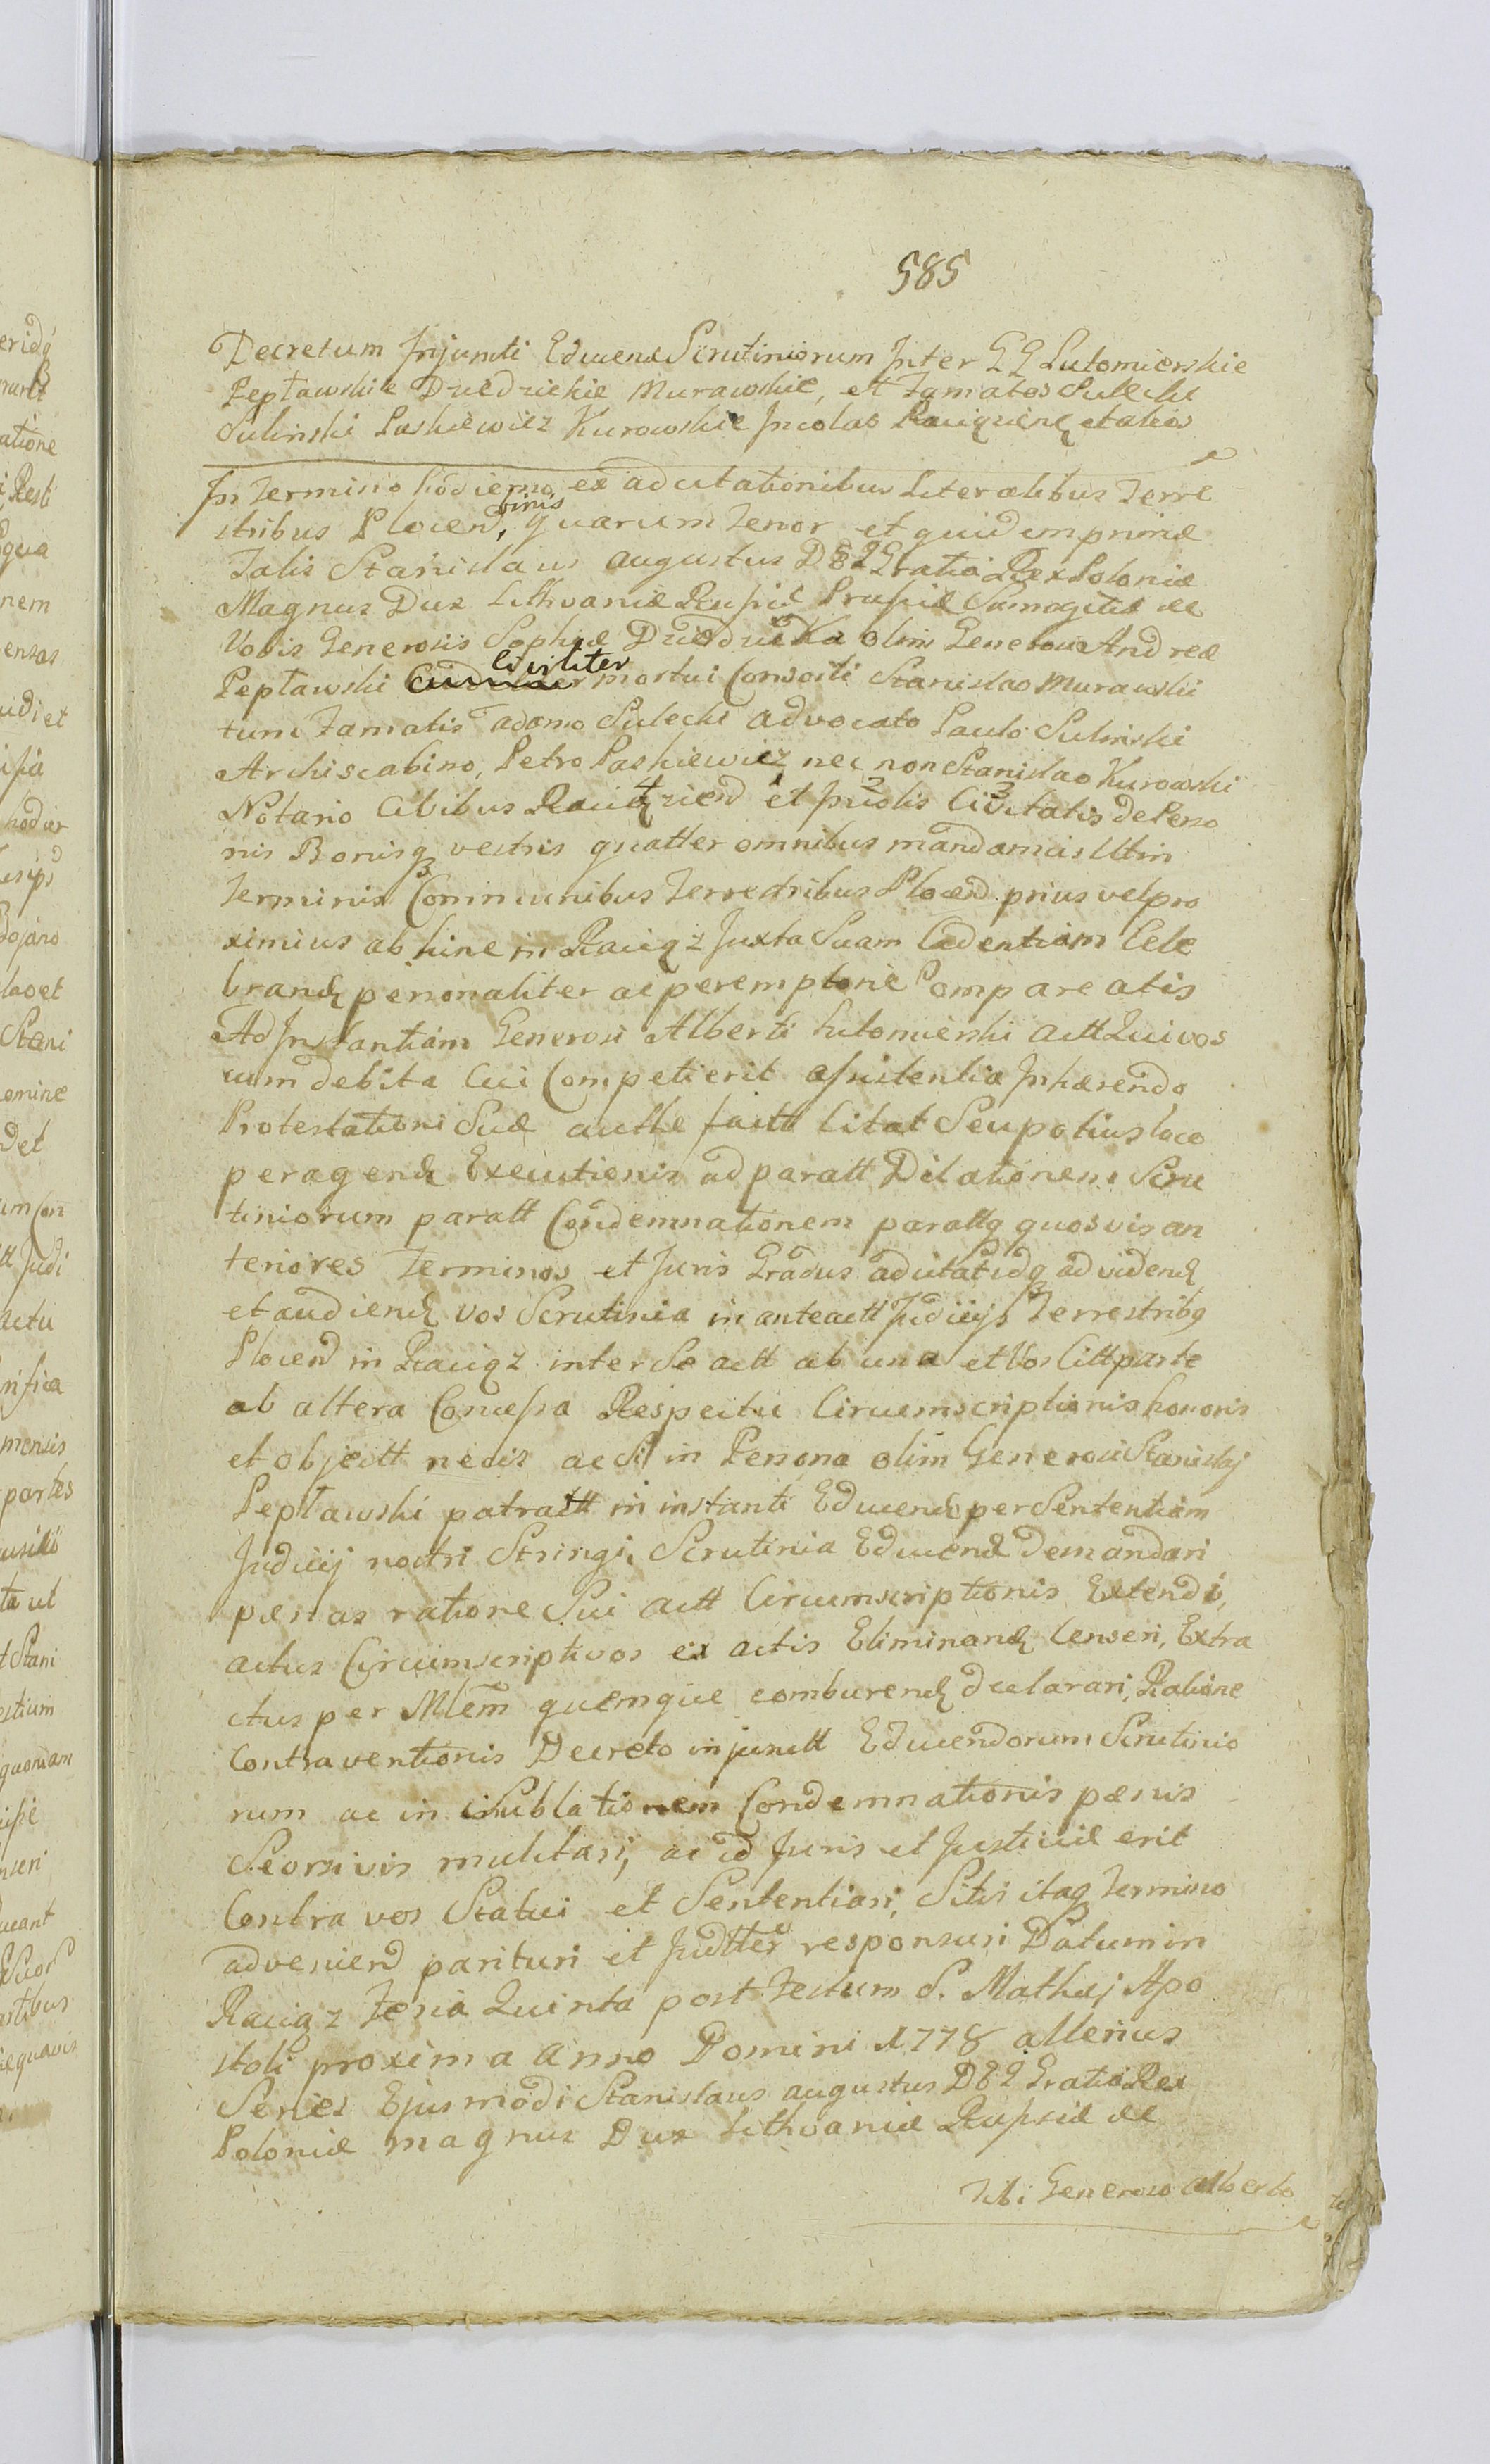 585
Decretum Injuncti Educend Scrutiniorum Inter GG Lutomierskie
Peptawskie Dziedzickie Murawskie, et Famatos Sulecki
Sulinski Paskiewicz Kurowskie Incolas Raciązienẽ et alios
In Termino hodierno ex adcitationibus Literalibus Terre
stribus Plocen, binis quarum Tenor et quidem primæ
Talis Stanislaus Augustus D G Gratia Rex Poloniæ
Magnus Dux Lithvaniæ Rusiæ Prusiæ Samogitiæ &c
Vobis Generosis Sophiæ Dziedzicka olim Generosi Andreæ
Peptawski civiliter mortui Consorti Stanislao Murawski
tum Famatis Adamo Sulecki advocato Paulo Sulinski
Archiscabino, Petro Paskiewicz nec non Stanislao Kurowski
Notario Civibus Raciązien et Incolis Civitatis de Perso
nis Bonisq vestris gnatter omnibus mandamus Ut in
Terminis Communibus Terrestribus Plocen prius vel pro
ximius ab hinc in Raciąz Juxta Suam Cadentiam Cele
brand personaliter ac peremptorie Compareatis
Ad Instantiam Generosi Alberti Lutomierski actt Qui vos
cum debita Cui Competierit assistentia Inhærendo
Protestationi Suæ actte factt Citat Seu potius loco
peragendæ Executionis ad paratt Dilationem Scru
tiniorum paratt Condemnationem parattq quosvis an
teriores Terminos et Juris Gradus adcitat idq ad videnđ
et audienđ vos Scrutinia in anteactt Judicijs Terrestribq
Plocen in Raciąz inter Se actt ab una et Vos Citt parte
ab altera Concessa Respectu Circumscriptionis honoris
et objectt necis ac Si in Persona olim Generosi Stanislaj
Peptawski patratt in instanti Educend per Sententiam
Judicij nostri Stringi, Scrutinia Educend Demandari
pænas ratione Sui actt Circumscriptionis Extendi,
actus Circumscriptivos ex actis Eliminand Censeri, Extra
ctus per Mlem quemque comburend declarari, Ratione
Contraventionis Decreto injunctt Educendorum Scrutinio
rum ac in Sublationem Condemnationis pænis
Seorsivis mulctari, ac id Juris et Justiciæ erit
Contra vos Statui et Sententiari, Sitis itaq Termino
advenien parituri et Judtter responsuri Datum in
Raciąz Feria Quinta post Festum S. Mathæj Apo
stoli proxima Anno Domini 1778 alterius
Series Ejusmodi Stanislaus Augustus D G Gratia Rex
Poloniæ Magnus Dux Lithvaniæ Rusiæ &c
Tibi Generoso Alberto